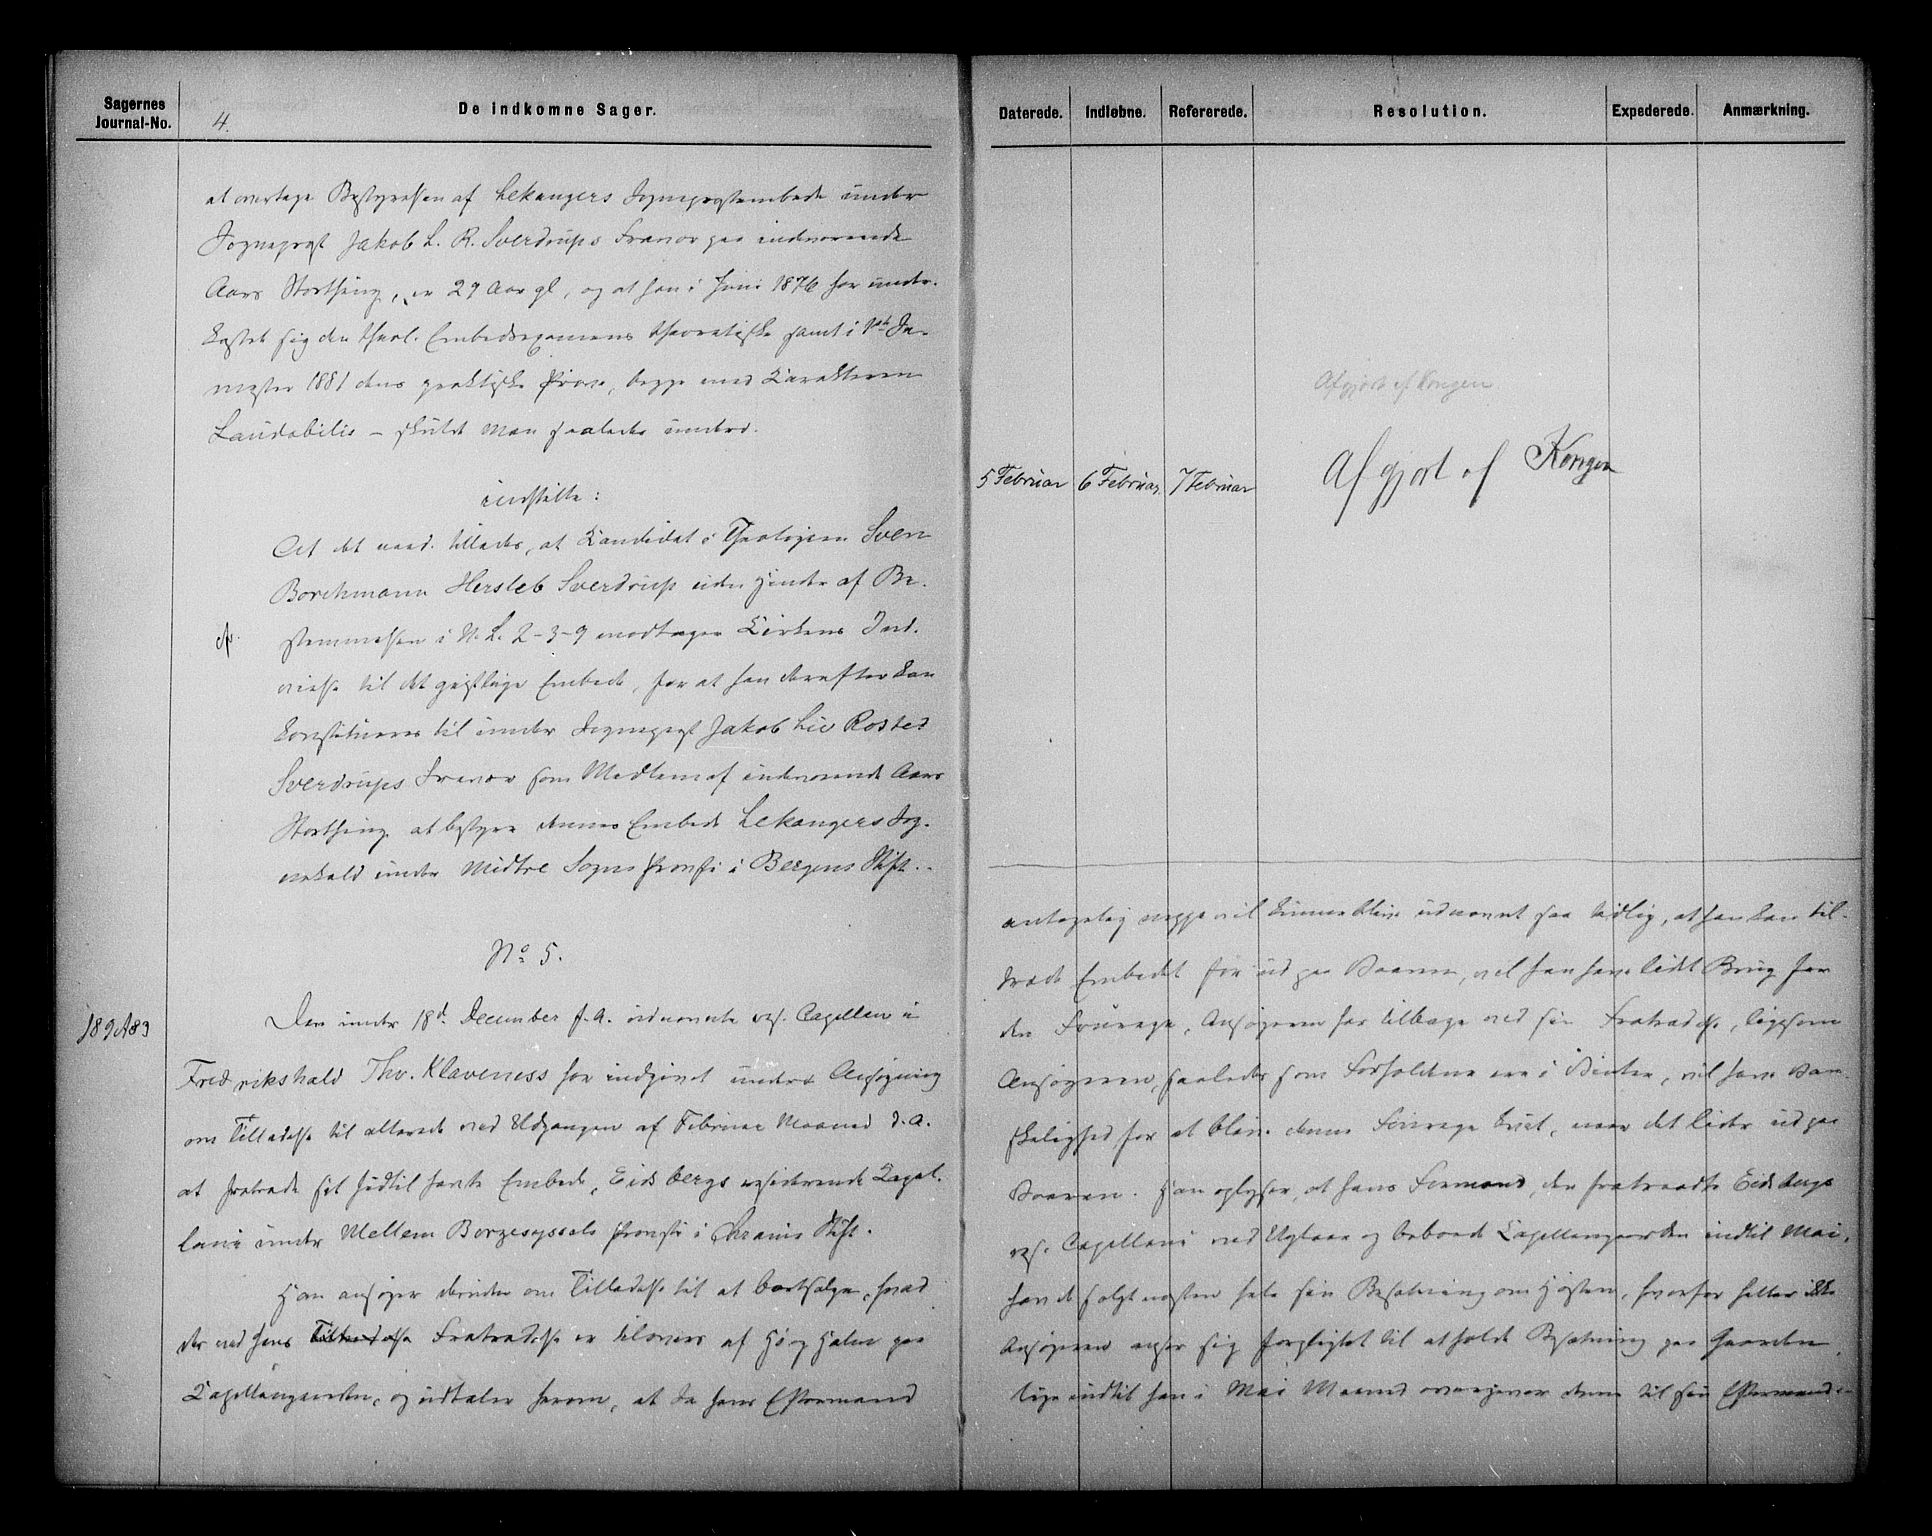 Sagernes
Journal-No.
4.
De indkomne Sager.
at overtage Bestyrelsen af Lekangers Sognepræstembede under
Sognepræst Jakob L. R. Sverdrups Fravær paa indeværende
Aars Storthing, er 29 Aar gl, og at han i Juni 1876 har under-
kastet sig den theol. Embedsexamens theoretiske samt i 1ste Se-
mester 1881 dens praktiske Prøve, begge med Karakteren
Laudabilis – skulde man saaledes underd.
indstille:
At det naad. tillades, at Kandidat i Theologien Sven
Borchmann Hersleb Sverdrup uden Hinder af Be-
stemmelsen i N. L. 2-3-9 modtager Kirkens Ind-
vielse til det geistlige Embede, for at han derefter kan
konstitueres til under Sognepræst Jakob Liv Rosted
Sverdrups Fravær som Medlem af indeværende Aars
Storthing at bestyre dennes Embede Lekangers Sog-
nekald under Midtre Sogns Provsti i Bergens Stift.
No 5.
189 A83
Den under 18d. December f. A. udnævnte res. Capellan i
Fredrikshald Thv. Klaveness har indgivet underd. Ansøgning
om Tilladelse til allerede ved Udgangen af Februar Maaned d. A.
at fratræde sit hidtil havte Embede, Eidsbergs residerende Kapel-
lani under Mellem Borgesyssels Provsti i Chrania Stift.
Han ansøger derunder om Tilladelse til at bortsælge, hvad
der ved hans Tiltrædelse Fratrædelse er tilovers af Hø og Halm paa
Kapellangaarden, og udtaler herom, at da hans Eftermand
Daterede.
Indløbne.
Refererede.
Resolution.
Expederede.
Anmærkning.
Afgjort af Kongen
5 Februar
6 Februar
7 Februar
Afgjort af Kongen
antagelig neppe vil kunne blive udnævnt saa tidlig, at han kan til-
træde Embedet før ud paa Vaaren, vil han have lidet Brug for
den Fourage, Ansøgeren har tilbage ved sin Fratrædelse, ligesom
Ansøgeren, saaledes som Forholdene ere i Vinter, vil have Van-
skelighed for at blive denne Fourage kvit, naar det lider ud paa
Vaaren. Han oplyser, at hans Formand, den fratraadte Eidsbergs
res. Capellani ved og beboede Kapellangaarden indtil Mai,
havde solgt næsten hele sin Besætning om Høsten, hvorfor heller ikke
Ansøgeren anser sig forpligtet til at holde Besætning paa Gaarden,
lige indtil han i Mai Maaned overgiver denne til sin Eftermand